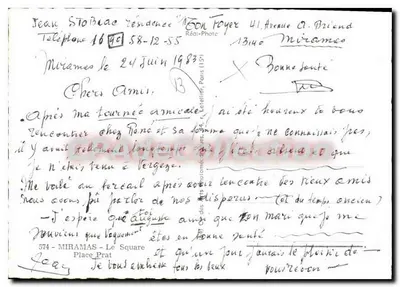 Jean résidence "Bon Foyer 41 Avenue A. Briand
Téléphone 16 90 58-12-55
13140 Miramas
Réal-Photo
Miramas le 24 Juin 1983
Bonne Santé
Chers Amis,
Après ma tournée amicale, j'ai été heureux de vous
rencontrer chez René et sa femme que je ne connaissais pas,
il y avait longtemps que
je n'étais venu à Vergèze.
Me voilà au bercail après avoir rencontré des vieux amis
nous avons pu parler de nos disparus - (et du temps ancien)
- J'espère que toi ainsi que ton mari que je me
souviens que vaguement êtes en bonne santé
574 - MIRAMAS - Le Square
Place Prat
et qu'un jour j'aurais le plaisir de
vous revoir -
Jean
Je vous embrasse tous les deux